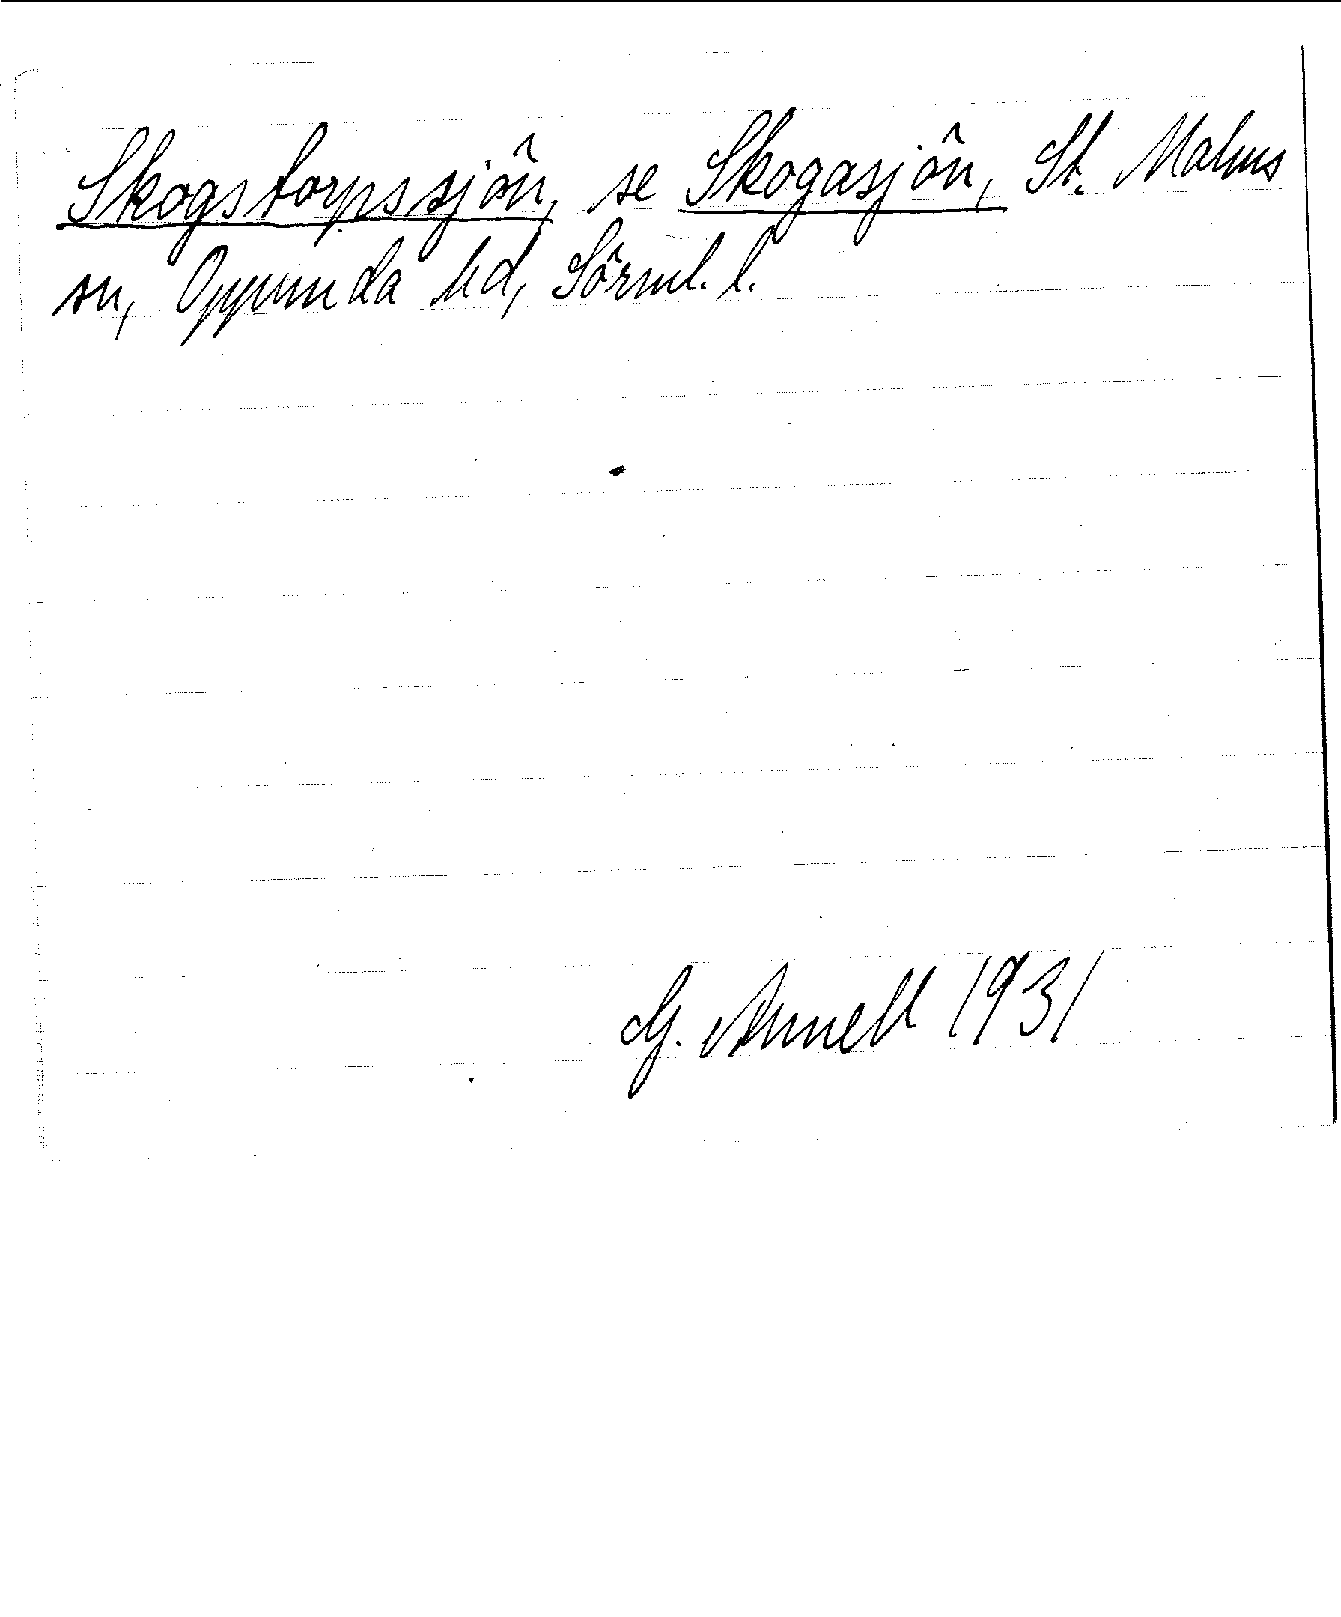 Skogstorpssjön, se Skogasjön, St. Malms
sn, Oppunda hd, Sörml. l.
G. Annell 1931